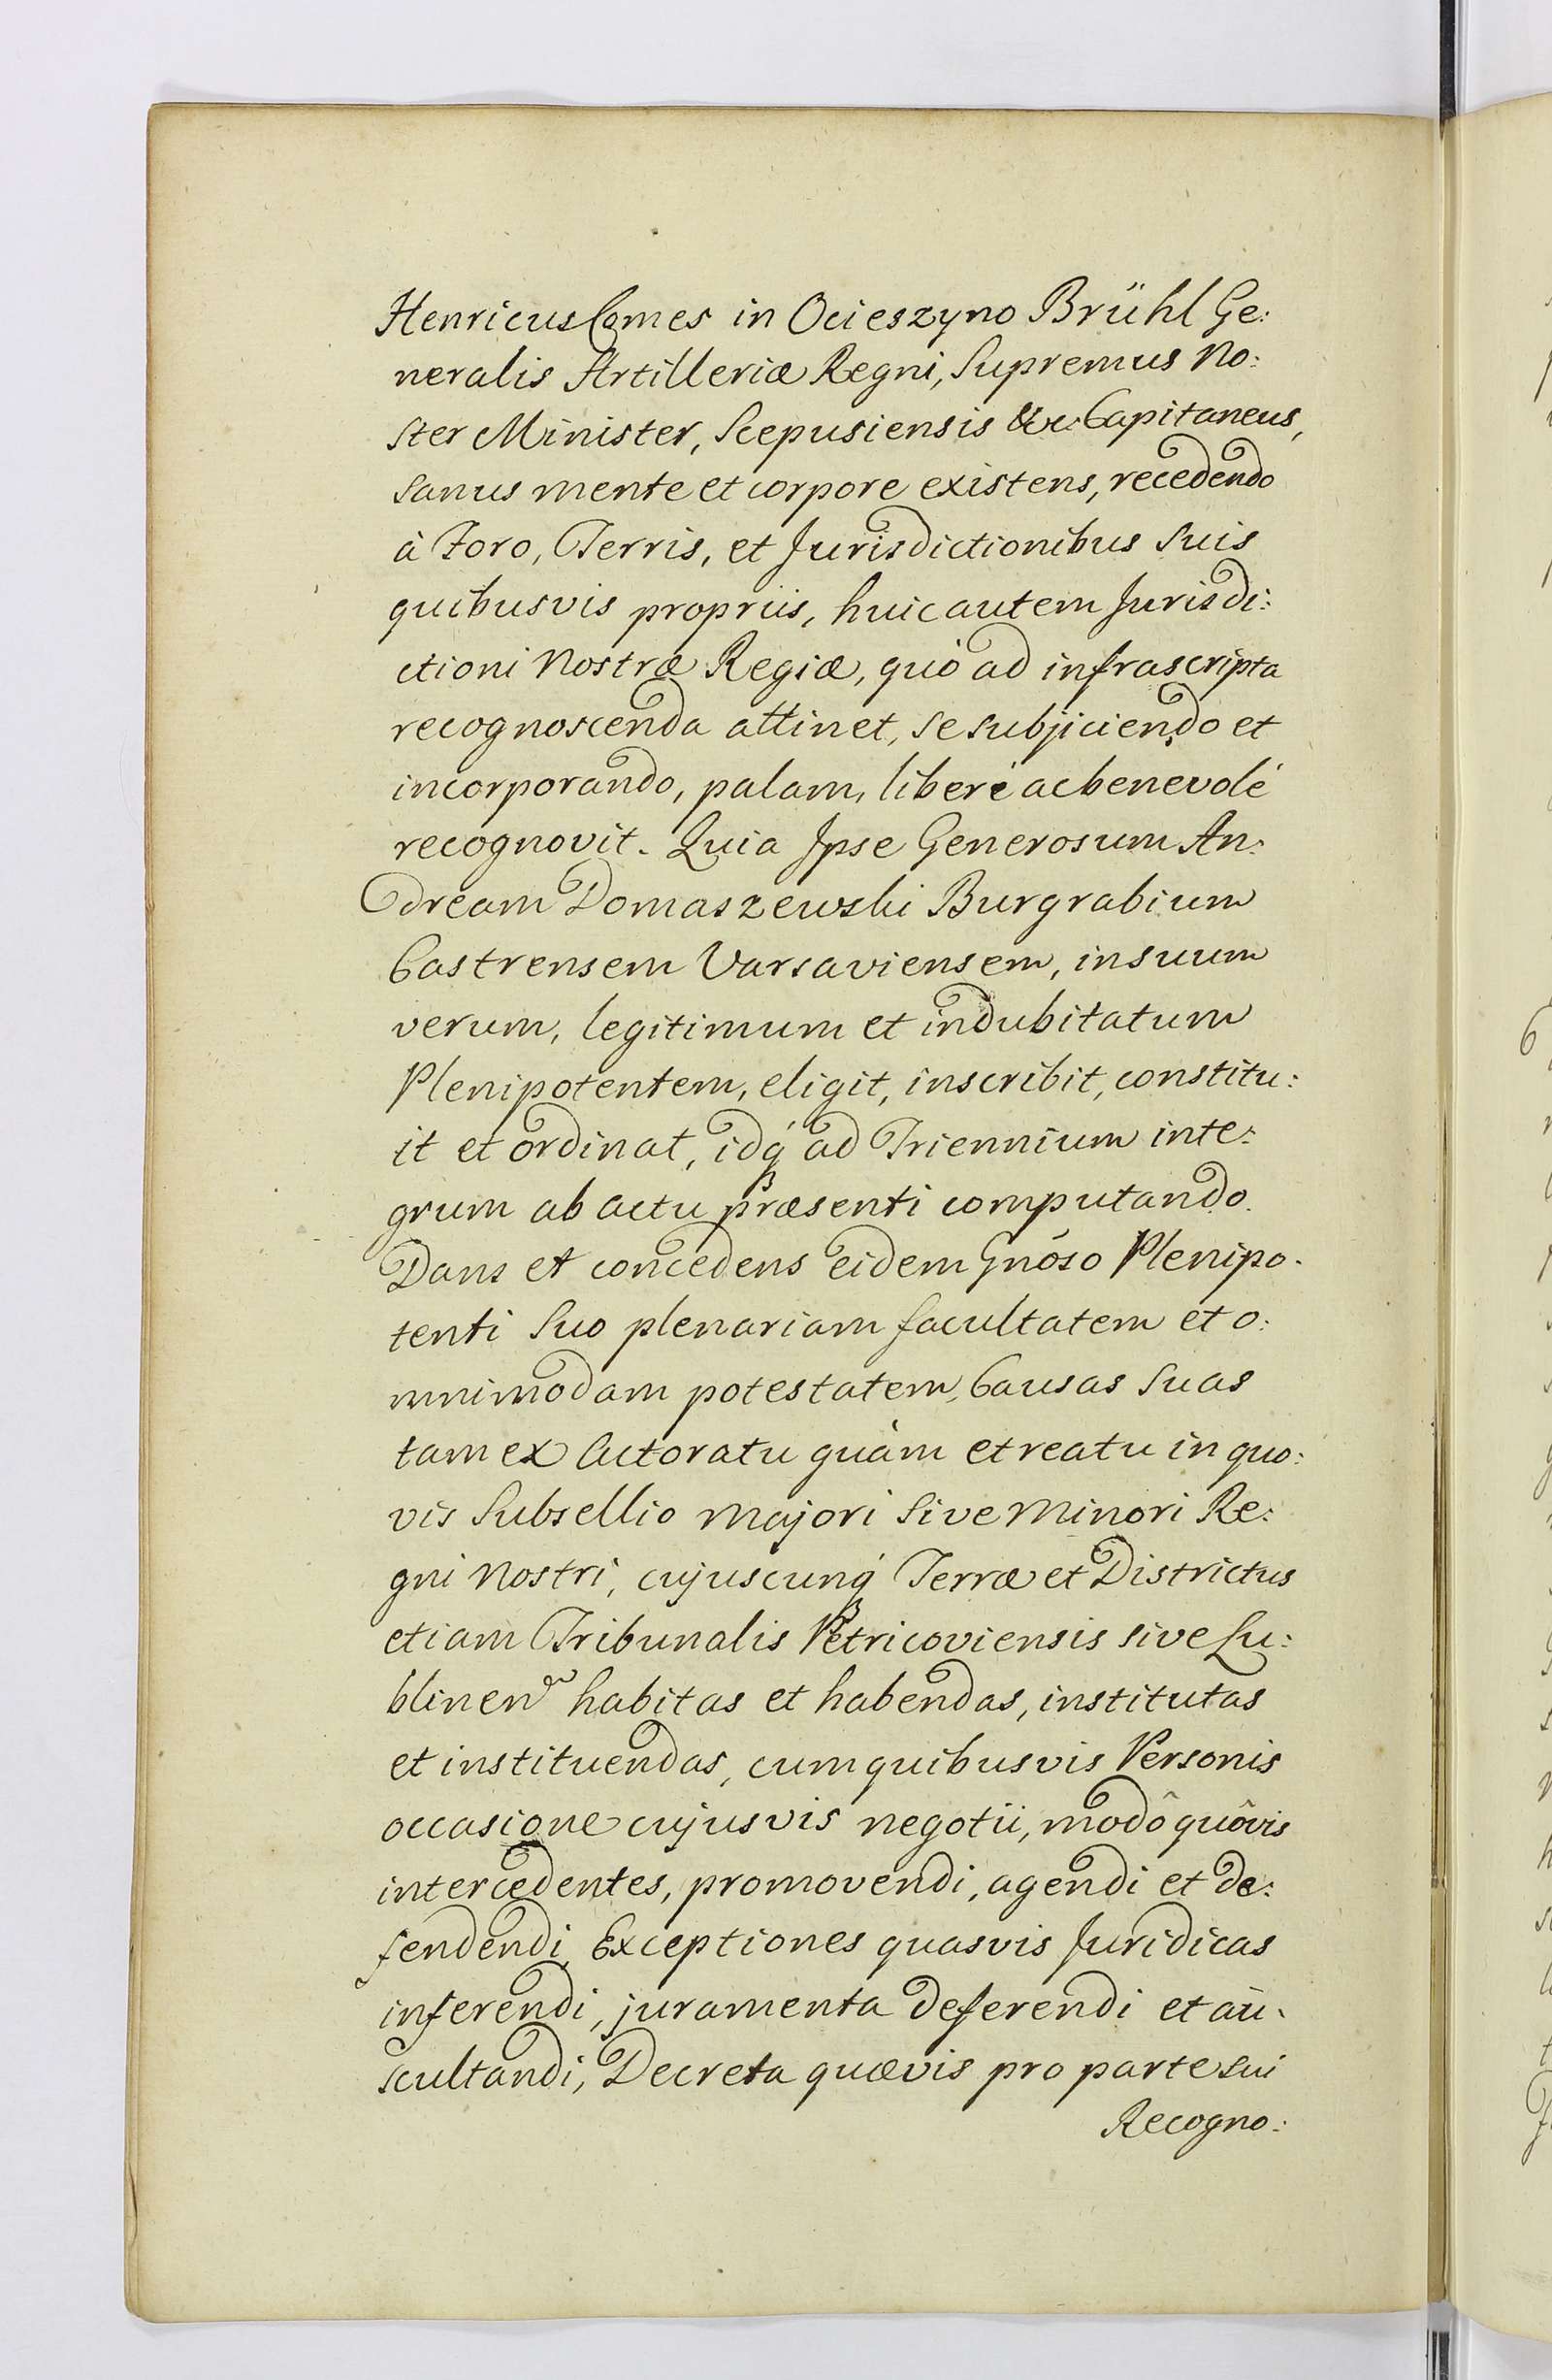 Henricus Comes in Ocieszyno Brühl Ge:
neralis Artilleriæ Regni, Supremus No:
ster Minister, Scepusiensis &c Capitaneus,
Sanus mente et corpore existens, recedendo
à Foro, Terris, et Jurisdictionibus Suis
quibusvis propriis, huic autem Jurisdi:
ctioni Nostræ Regiæ, quò ad infrascripta
recognoscenda attinet, se subjiciendo et
incorporando, palam, liberè ac benevolè
recognovit. Quia Ipse Generosum An:
dream Domaszewski Burgrabium
Castrensem Varsaviensem, in suum
verum, legitimum et indubitatum
Plenipotentem, eligit, inscribit, constitu:
it et ordinat, idq́ ad Triennium inte:
grum ab actu præsenti computando.
Dans et concedens eidem Gnóso Plenipo.
tenti Suo plenariam facultatem et o:
mnimodam potestatem, Causas Suas
tam ex Actoratu quàm et reatu in quo:
vis Subsellio Majori Sive Minori Re:
gni Nostri, cujuscunq́ Terræ et Districtus
etiam Tribunalis Petricoviensis sive Lu:
blinen habitas et habendas, institutas
et instituendas, cum quibusvis Personis
occasione cujusvis negotii, modô quôvis
intercedentes, promovendi, agendi et de:
fendendi, Exceptiones quasvis Juridicas
inferendi, juramenta deferendi et au:
scultandi, Decreta quævis pro parte sui
Recogno: